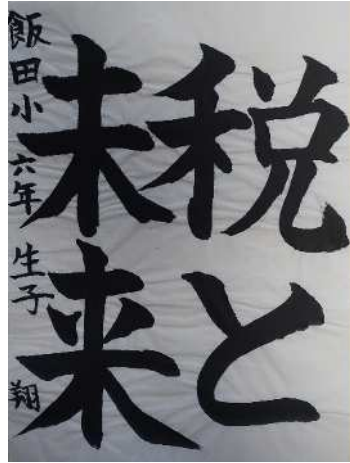 税と
未来
飯田小 六年 生子 翔